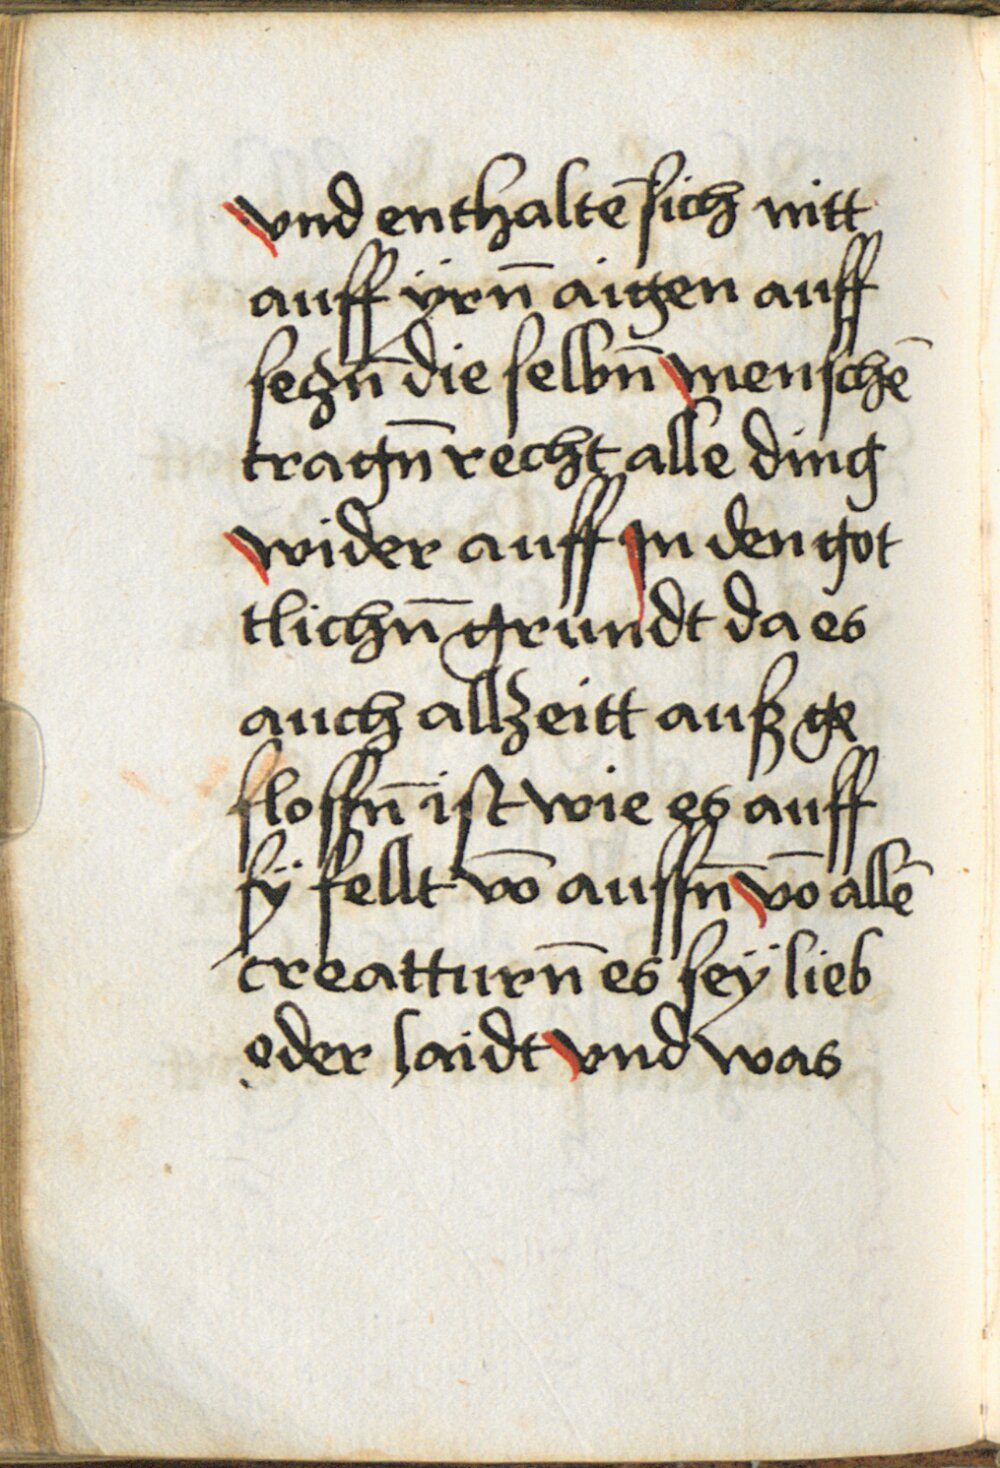 vnd enthaltē sich nitt
auff ÿrn̄ aigen auff
seczn̄ die selbn̄ menschē
tragn̄ recht alle ding
wider auff jn den got
tlichn̄ grundt da es
auch allzeitt auß ge
flossn̄ ist wie es auff
sÿ fellt vō aussn̄ vō allē
creatturn̄ es seÿ lieb
oder laidt vnd was